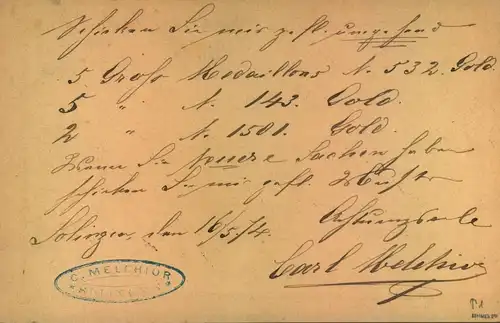 Schicken Sie mir gefl. umgehend
5 Gross Medaillons N. 532. Gold.
5 " N. 143. Gold.
2 " N. 1501. Gold.
Wenn Sie neue Sachen haben
schicken Sie mir gefl. Muster
Achtungsvoll
Solingen, den 16/5. 74.
Carl Melchior
C. MELCHIOR
SOLINGEN